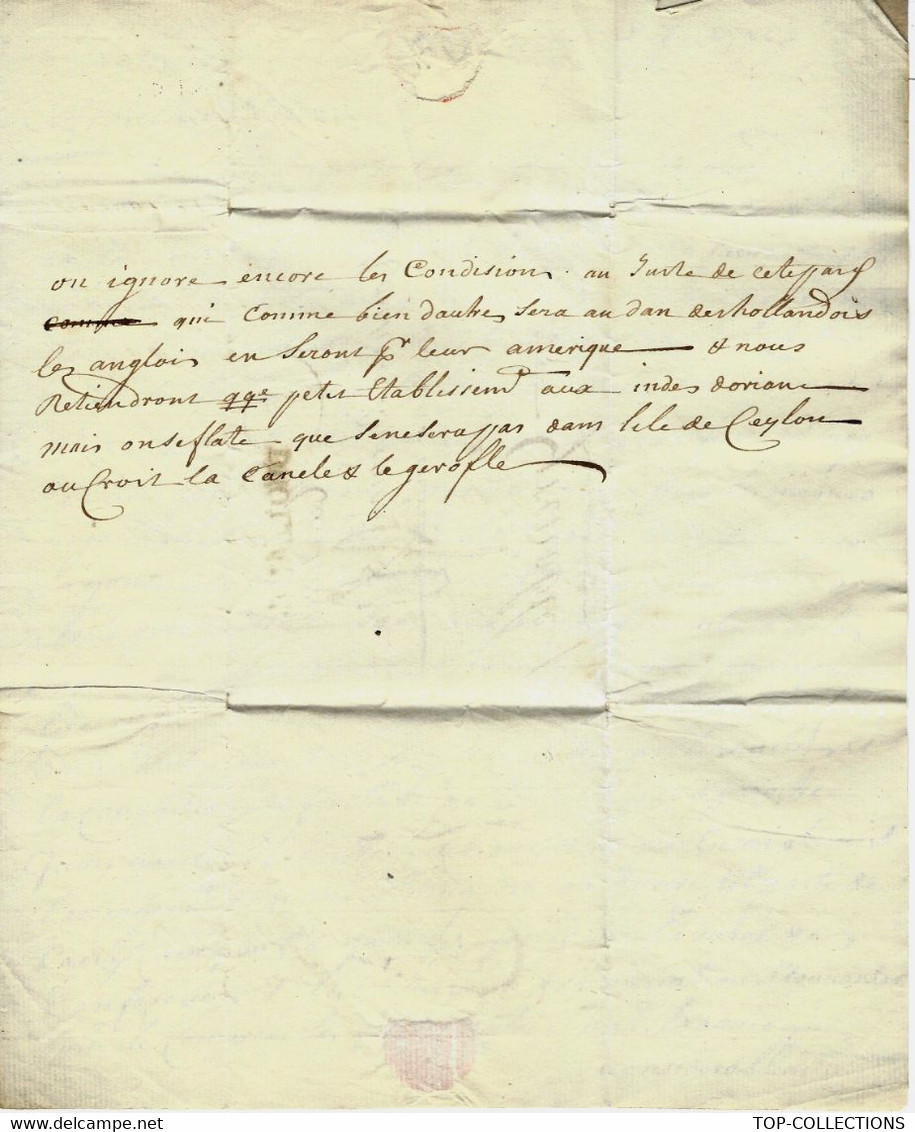 on ignore encore les Condision au Juste de cete paix
comme qui Comme bien dautres sera au dan des hollandois
les anglois en Seront pr leur amerique & nous
Retiendront qqe petit Etablissemt aux indes dorian
mais on se flate que se ne sera pas dans lile de Ceylon
ou Croit la Canele & le gerofle
TOP-COLLECTIONS